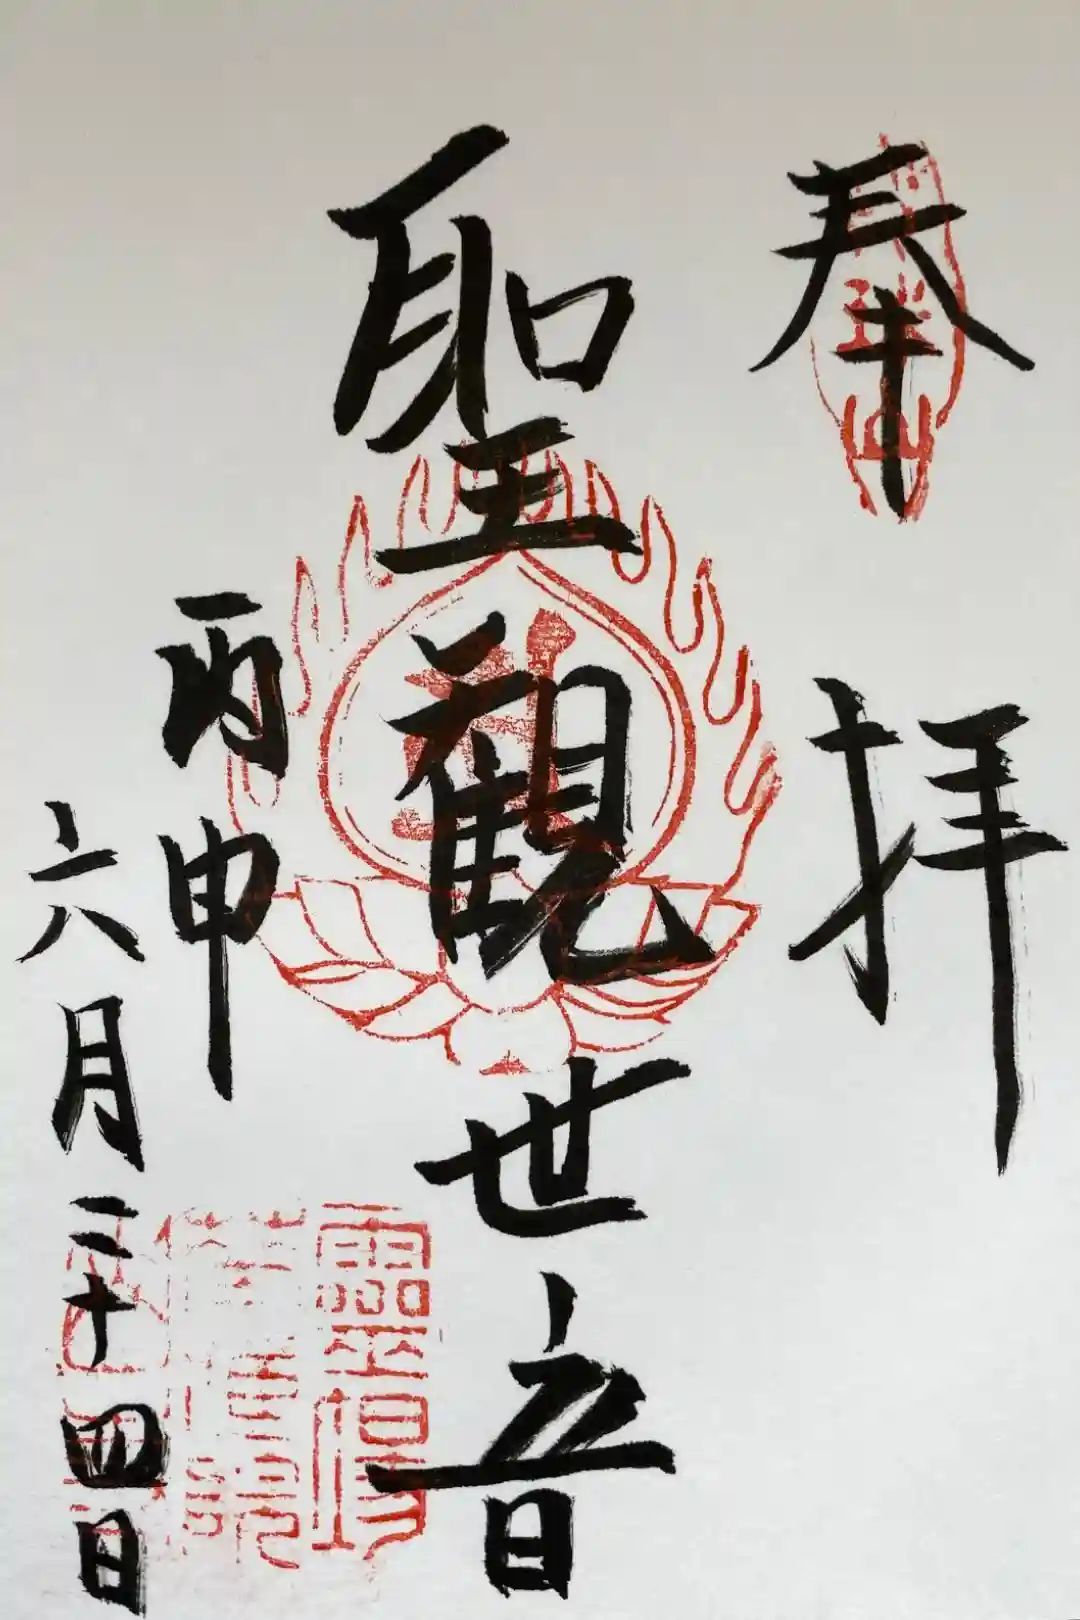 奉拝
聖觀世音
丙申
六月二十四日